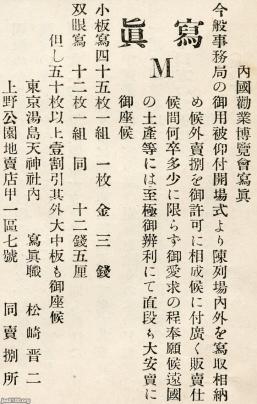 內國勸業博覽會寫眞
今般事務局の御用被仰付開場式より陳列場內外を寫取相納
め候外賣捌を御許可に相成候に付廣く販賣仕
候間何卒多少に限らず御愛求の程奉願候遠國
の土產等には至極御辨利にて直段も大安賣に
御座候
寫眞
M
小板寫四十五枚一組 一枚 金三錢
双眼寫 十二枚一組 同 十二錢五厘
但し五十枚以上壹割引其外大中板も御座候
東京湯島天神社內 寫眞職 松崎晋二
上野公園地賣店甲一區七號 同賣捌所
jaa2100.org